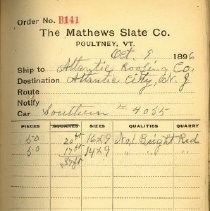 Order No. B141
The Mathews Slate Co.
POULTNEY, VT.
Oct 9 1896
Ship to Atlantic Roofing Co.
Destination Atlantic City, N. J
Route
Notify
Car Southern 4055
PIECES SQUARES SIZES QUALITIES QUARRY
50 20 16x9 No.1 Bright Red
50 14x9 " "